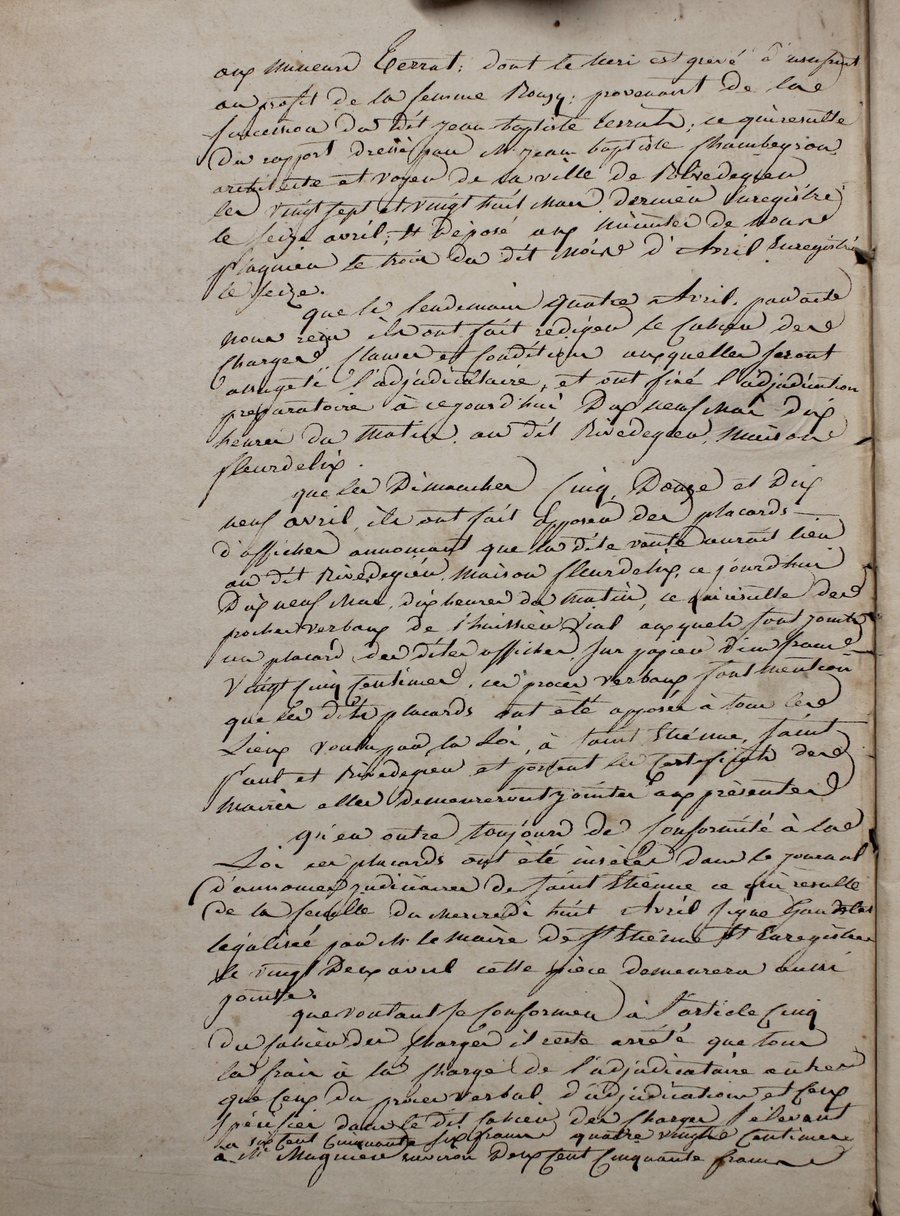 aux mineurs Terrat; dont le tiers est grevé d'usufruit
au profit de la femme Rouzy; provenant de la
succession du dit jean baptiste terrat; ce qui resulte
du rapport dressé par Mr jean baptiste Chambeyron
architecte et voyer de la ville de Rivedegier
les vingt sept et vingt huit Mars dernier Enregistré
le seize avril, et déposé aux minutes de nous
le trois du dit Mois d'Avril Enregistré
le seize.
que le lendemain quatre Avril, par acte
nous reçu ils ont fait rediger le Cahier des
Charges Clauses et Conditions auxquelles seront
assugeti l'adjudicataire, et ont fixé l'adjudication
preparatoire à cejourd'hui Dix neuf Mai Dix
heures du Matin, au dit Rivedegier, Maison
fleurdelix.
que les Dimanches Cinq, Douze et Dix
neuf avril, ils ont fait apposer des placards
d'affiches annonçant que la dite vente aurait lieu
au dit Rivedegier, Maison fleurdelix, ce jourd'hui
Dix neuf Mai, dix heures du Matin, ce qui résulte des
procès verbaux de l'huissier Vial auxquels sont joints
un placard des dites affiches, sur papier d'un franc
Vingt Cinq Centimes, ces procès verbaux font mention
que les dits placards ont été apposés à tous les
Lieux voulus par la Loi, à Saint Etienne, Saint
Paul et Rivedegier et portent les Certificats des
Maires elles demeureront jointes aux présentes
qu'en outre toujours de Conformité à la
Loi ces placards ont été insérés dans le journal
d'annonces judiciaires de Saint Etienne ce qui résulte
de la feuille du Mercredi huit Avril signé
légalisée par Mr le Maire de St Etienne et Enregistrée
le vingt Deux avril cette pièce demeurera aussi
jointe.
que voulant se Conformer à l'article Cinq
du Cahier des Charges il reste arrêté que tous
les frais à la Charge de l'adjudicataire autres
que Ceux du procès verbal d'adjudication et Ceux
spécifiés dans le dit Cahier des Charges s'élevant
à six Cent Cinquante six francs quatre vingts Centimes
à Mr environ Deux Cent Cinquante francs